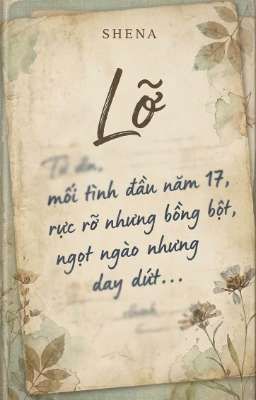 SHENA
Lỡ
mối tình đầu năm 17,
rực rỡ nhưng bồng bột,
ngọt ngào nhưng
day dứt...